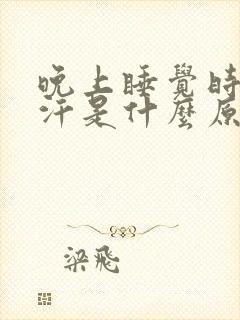 晚上睡覺時
汗是什麼原
梁飛